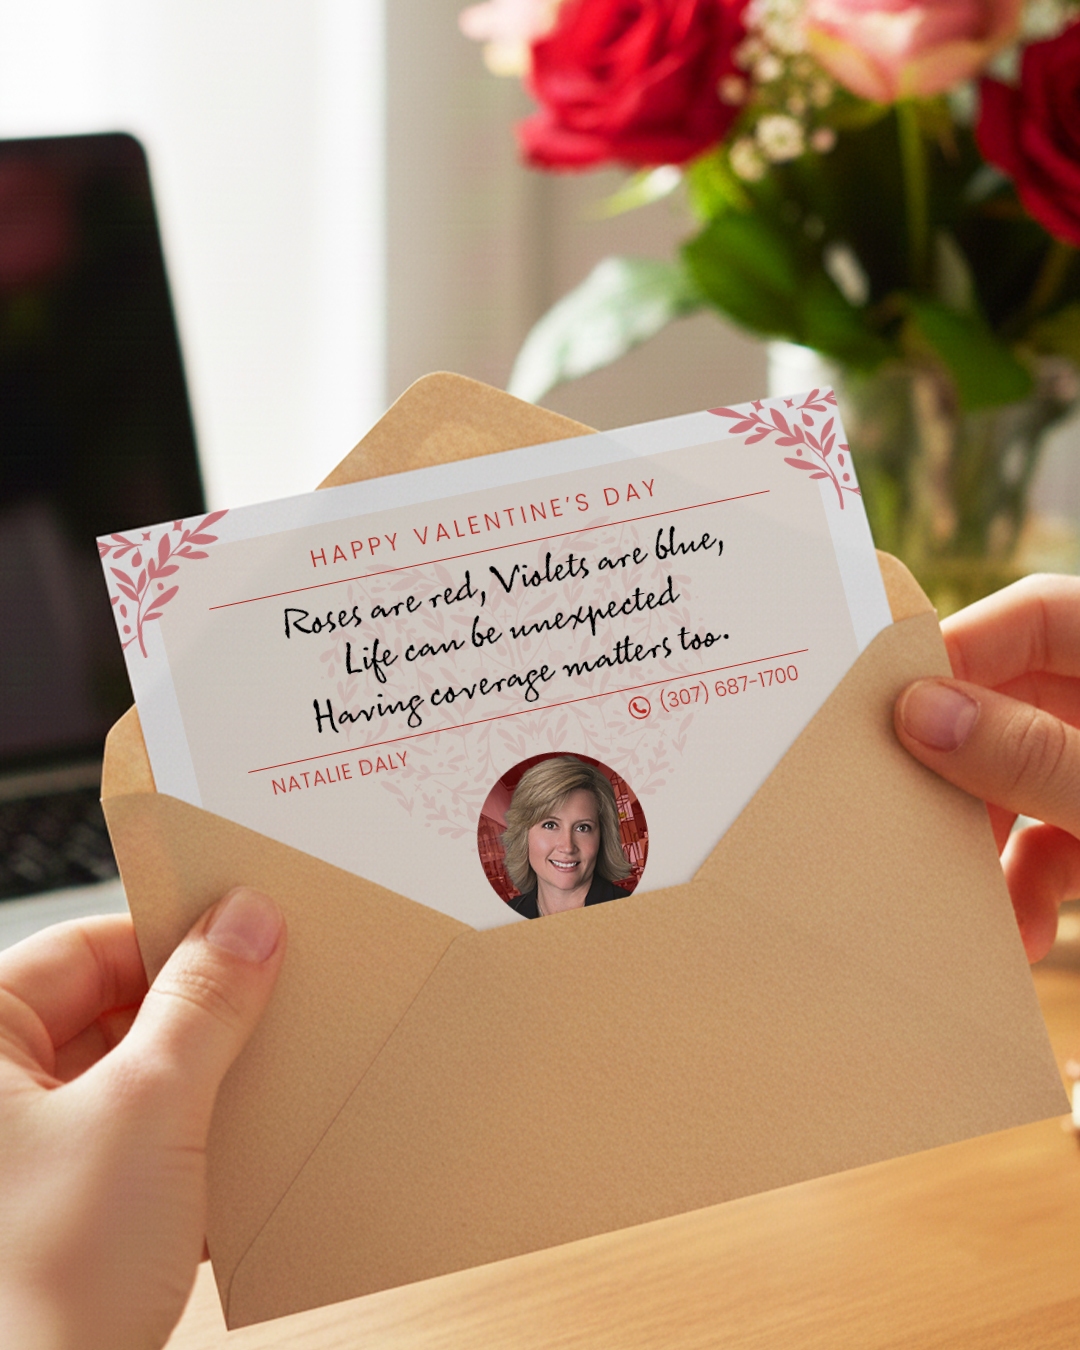 HAPPY VALENTINE'S DAY
Roses are red, Violets are blue,
Life can be unexpected
Having coverage matters too.
NATALIE DALY
(307) 687-1700